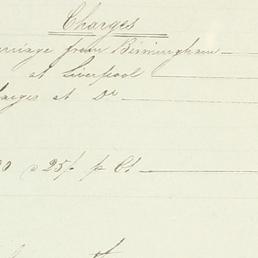 Charges
rriage from Birmingham
at Liverpool
harges at Do
0 @ 25/ p Ct
of